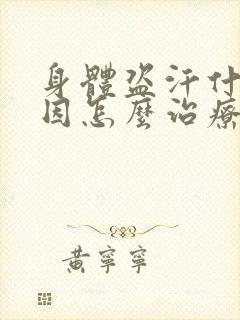 身體盜汗什
因怎麼治療
黃寧寧